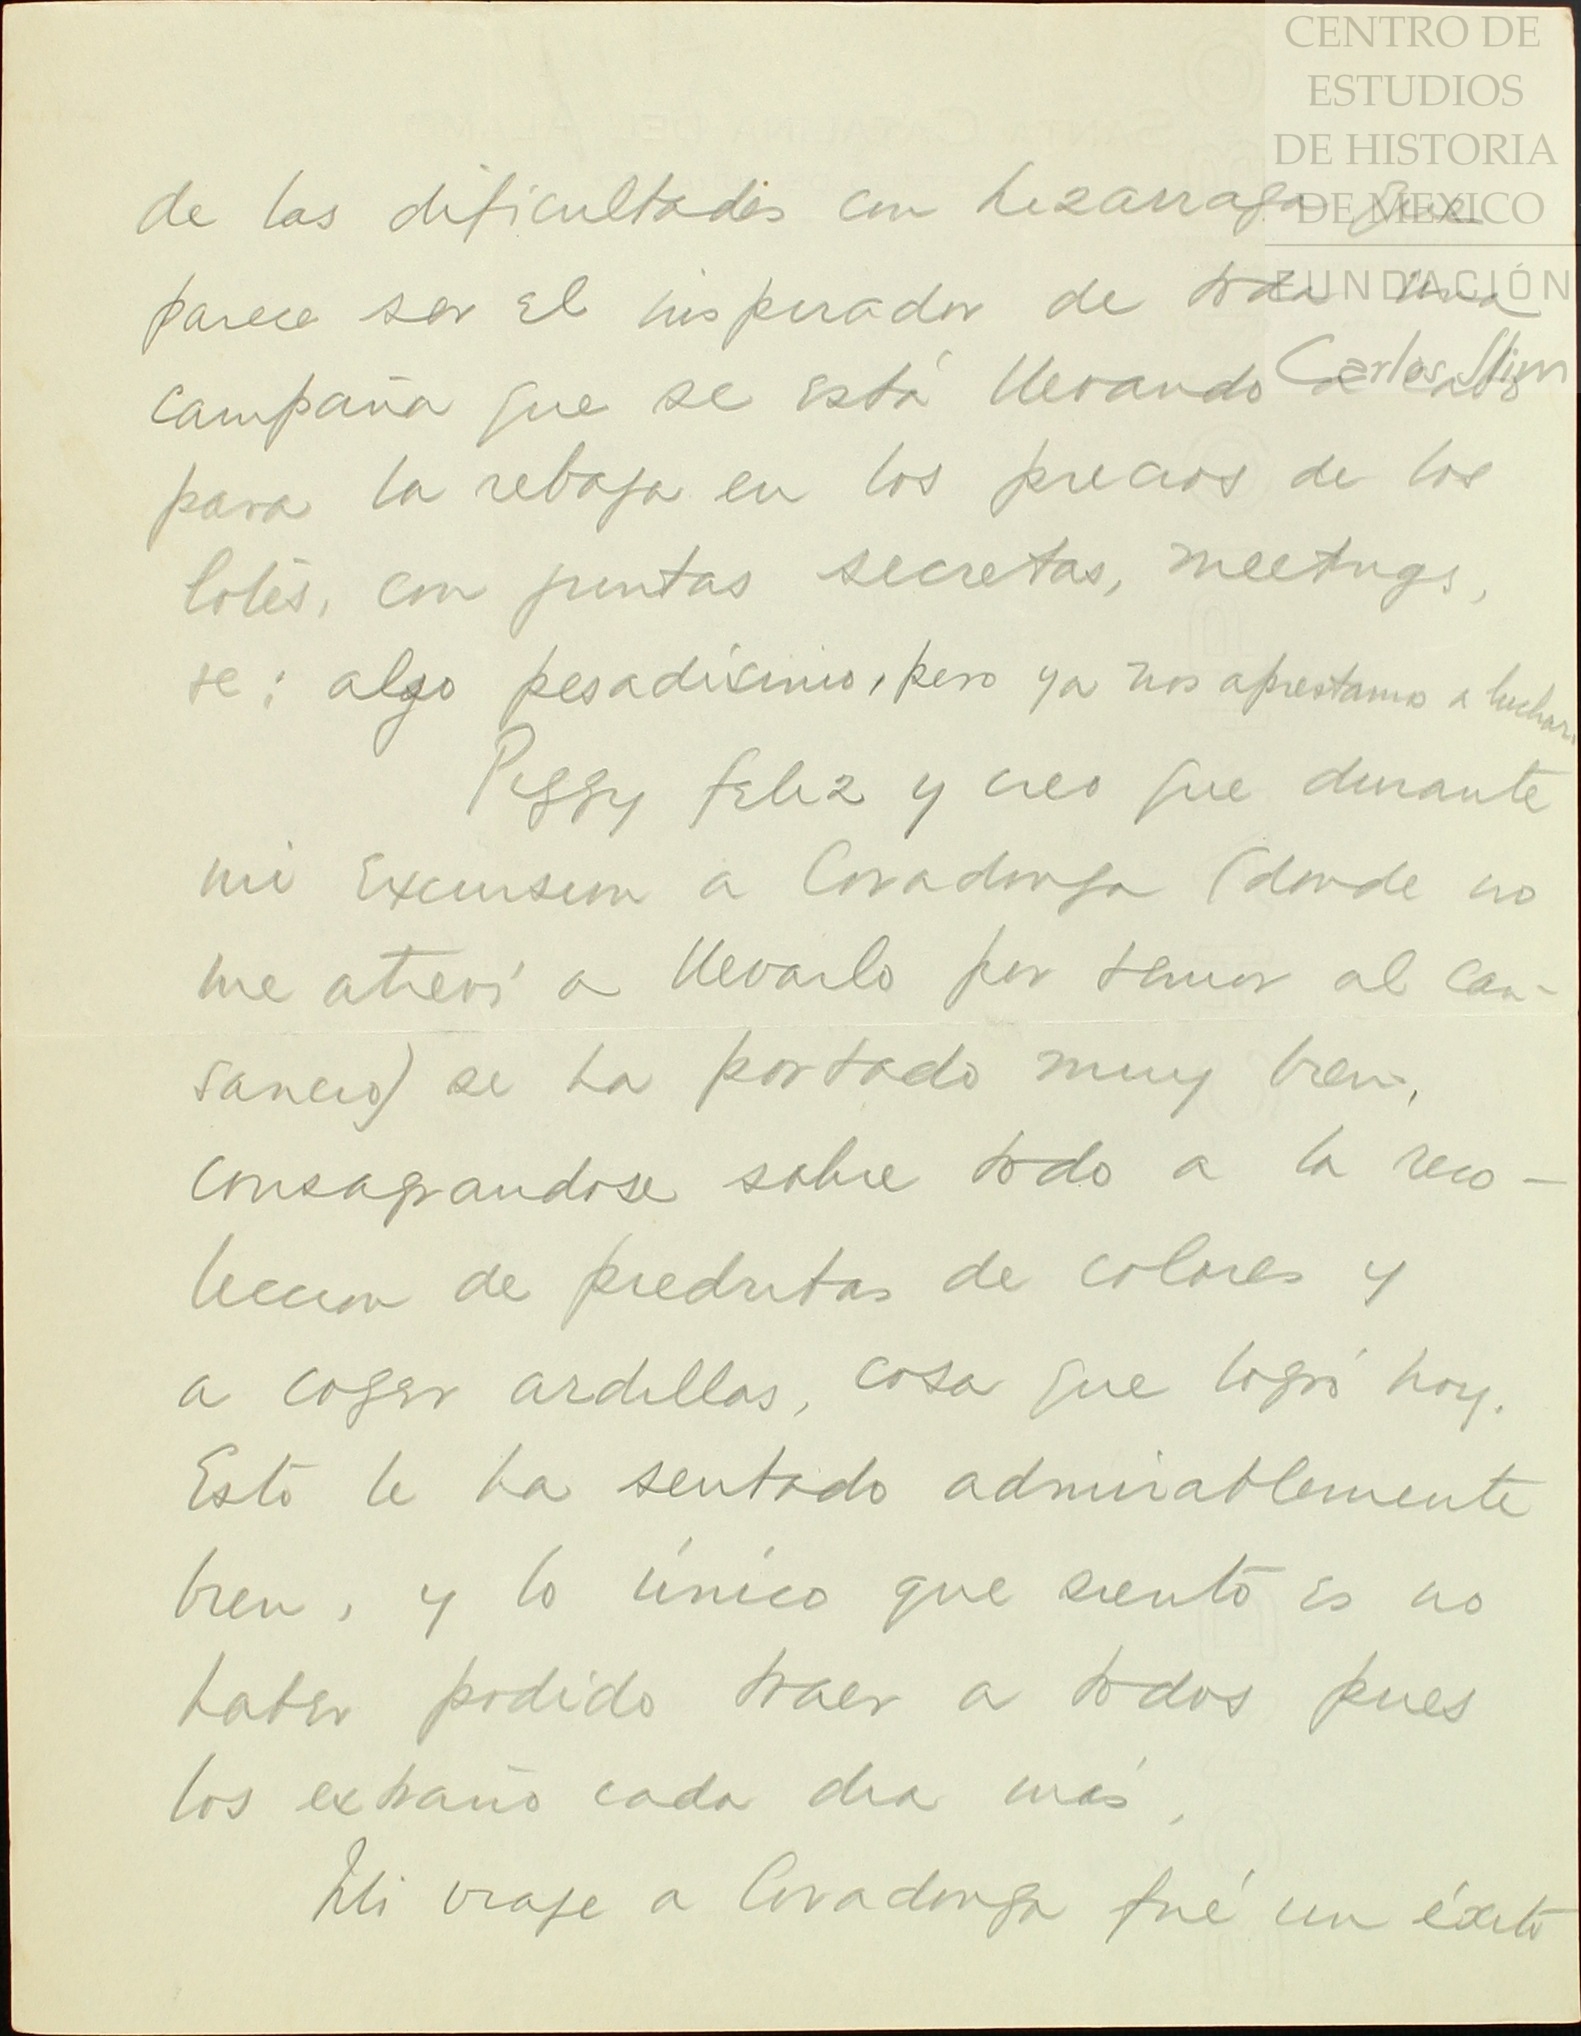 CENTRO DE
ESTUDIOS
DE HISTORIA
DE MEXICO
FUNDACIÓN
Carlos Slim
SANTA CATALINA DEL ALAMO
de las dificultades con Lizarraga que
parece ser el inspirador de toda una
campaña que se está llevando a cabo
para la rebaja en los precios de los
lotes, con juntas secretas, meetings,
te; algo pesadísimo, pero ya nos aprestamos a luchar.
Peggy feliz y creo que durante
mi excursion a Covadonga (donde no
me atreví a llevarlo por temor al can-
sancio) se ha portado muy bien,
consagrandose sobre todo a la reco-
leccion de piedritas de colores y
a coger ardillas, cosa que logró hoy.
Esto le ha sentado admirablemente
bien, y lo único que siento es no
haber podido traer a todos pues
los extraño cada dia más.
Mi viaje a Covadonga fué un éxito